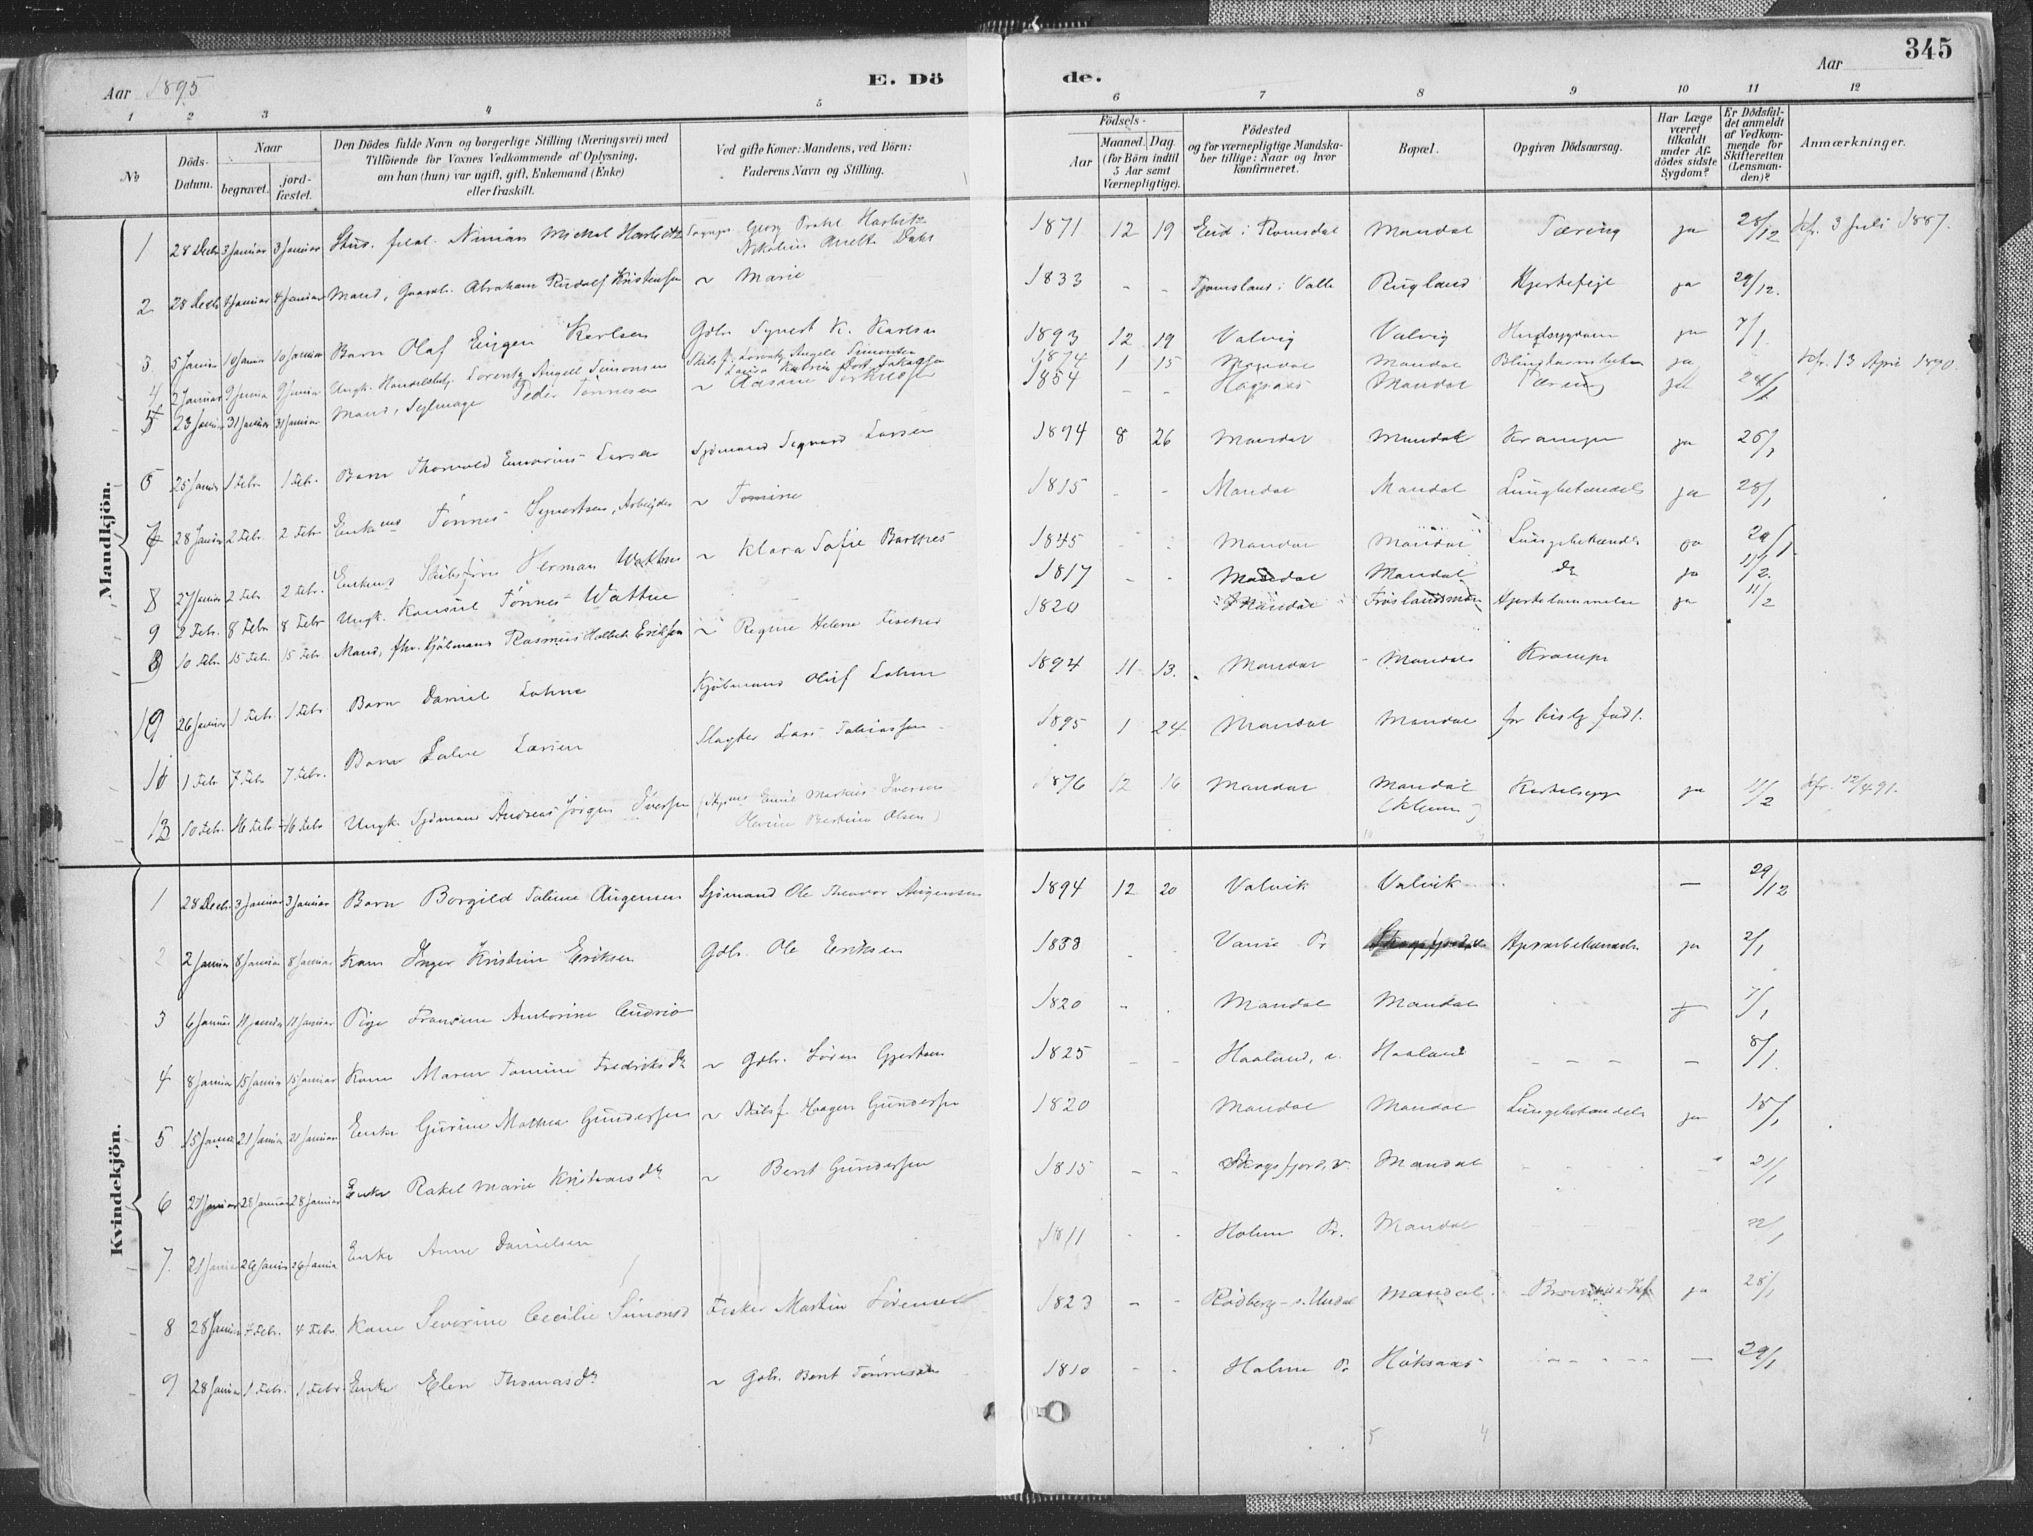 345
Aar 1895
E. Dö
de.
Aar
1 2 3 4 5 6 7 8 9 10 11 12
No
Döds-
Datum.
Naar
begravet.
jord-
fæstet.
Den Dödes fulde Navn og borgerlige Stilling (Næringsvei) med
Tilföiende for Voxnes Vedkommende af Oplysning,
om han (hun) var ugift, gift, Enkemand (Enke)
eller fraskilt.
Ved gifte Koner: Mandens, ved Börn:
Faderens Navn og Stilling.
Födsels-
Aar
Maaned.
Dag.
(for Börn indtil
5 Aar samt
Værnepligtige).
Födested
og for værnepligtige Mandska-
ber tillige: Naar og hvor
konfirmeret.
Bopæl.
Opgiven Dödsaarsag.
Har Læge
været
tilkaldt
under Af-
dödes sidste
Sygdom?
Er Dödsfal-
det anmeldt
af Vedkom-
mende for
Skifteretten
(Lensman-
den)?
Anmærkninger.
Mandkjön.
1 28 Decbr 3 Januar 3 Januar Stud. filol. Ninian Michal Georg Prahl Harbitz 1871 12 19 Eid i Romsdal Mandal Tæring ja 28/12 kfr. 3 Juli 1887.
2 28 Decb 4 Januar 4 Januar Mand, Gaardb. Abraham Rudolf Kristensen ~ Marie 1833 - - Tjomsland i Valle Rugland Hjertefeil ja 29/12.
3 5 Januar 10 Januar 10 Januar Barn Olaf Eugen Karlsen Gdbr. Syvert K. Karlsen 1893 12 19 Valvig Valvig Hudsygdom ja 7/1
4 2 Januar 9 Januar 9 Januar Ungk. Handelsbetj. Lorentz Angell Simonsen Skibsf. Lorentz Angell Simonsen 1874 1 15 Mandal Mandal ja kfr. 13 April 1890.
5 23 Januar 31 Januar 31 Januar Mand, Seglmager Peder Tønnesen ~ 1854 - - Mandal Tæring 24/1
6 25 Januar 1 Febr. 1 Feb. Barn Thorvald Larsen Sjømand Sigvard Larsen 1894 8 26 Mandal Mandal Krampe ja 26/1
7 28 Januar 2 Febr. 2 Febr. Enkem Tønnes Syvertsen, Arbeider ~ Tomine 1815 - - Mandal Mandal Lungbetændels ja 28/1
8 27 Januar 2 Febr 2 Febr. Enkem Skibsfører Herman Wattne ~ Klara Sofie Barthes 1845 - - Mandal Mandal Lungebetændels ja 29/1
9 2 Febr. 8 Febr 8 Febr Ungk. Konsul Tønnes Wattne 1817 - - Mandal Mandal do ja 11/2.
10 Febr. 15 Febr. 15 Febr. Mand, fhv. Kjøbmand Rasmus Holbek Eriksen ~ Regine Helene Fischer 1820 Mandal Hjertelammelse ja 11/2
26 Januar 1 Febr 1 Febr Barn Daniel Lohne Kjøbmand Oluf Lohne 1894 11 13. Mandal Mandal Krampe
1 Febr 7 Febr 7 Febr. Barn Larsen Slagter Lars Tobiassen 1895 1 24 Mandal Mandal for tidlig født.
13 10 Febr. 16 Febr 16 Febr Ungk. Sjømand Andreas Jørgen Iversen (Emil Markus Iversen Bertine Olsen) 1876 12 16 Mandal Mandal ja 11/2 kfr. 12/4 91.
Kvindekjön.
1 28 Decbr. 3 Januar 3 Januar Barn Borgild Taline Augensen Sjømand Ole Theodor Augensen 1894 12 20 Valvik Valvik — 29/12
2 2 Januar 8 Januar 8 Januar Kone Inger Kristine Eriksen Gdbr. Ole Eriksen 1833 - - Vanse Pr. ja 2/1
3 6 Januar 11 Januar 11 Januar Pige Fransine Andrio 1820 - - Mandal Mandal 7/1
4 8 Januar 15 Januar 15 Januar Kone Maren Tomine Fredriksdr ~ Gdbr. Søren Gjertsen 1825 - - Haaland, Haaland - - - — 8/1.
5 15 Januar 21 Januar 21 Januar Enke Gurine Mathea Gundersen ~ Skibsf. Haagen Gundersen 1820 Mandal Mandal Lungebetændels ja 18/1
6 21 Januar 28 Januar 28 Januar Enke Rakel Marie Kristensdr ~ Bent Gundersen 1815 - - Skogsfjord, v. Mandal 21/1
7. 21 Januar 26 Januar 26 Januar Enke Anne Danielsen 1811 - - Holme Pr. Mandal 22/1
8 28 Januar 4 Febr. 4 Febr. Kone Severine Cecilie Simonsd Fisker Martin Sørensen 1823 - - Rødberg s. Undal Mandal ja 28/1
9 28 Januar 1 Febr. 1 Febr. Enke Elen Thomasdr ~ Gdbr. Bent Tønnesen 1810 - - Holme Pr — 29/1